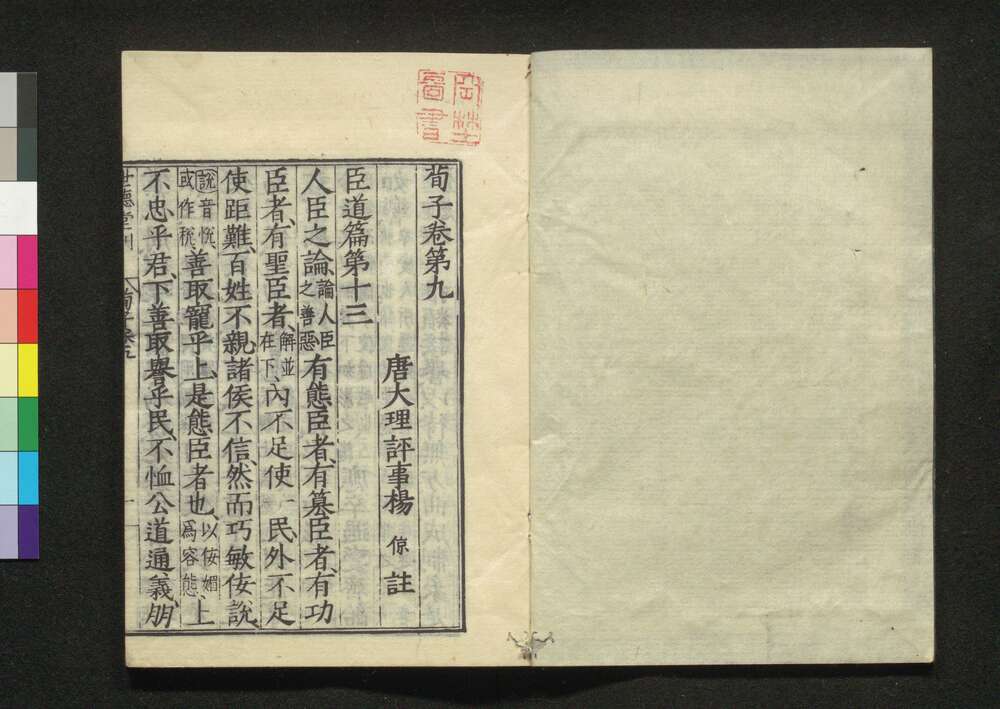 荀子卷第九
唐大理評事楊 倞 註
臣道篇第十三
人臣之論論人臣之善惡有態臣者、有簒臣者、有功
臣者、有聖臣者、解並在下、內不足使一民、外不足
使距難、百姓不親、諸侯不信、然而巧敏佞說、
說音悅、或作稅、善取寵乎上、是態臣者也、以佞媚爲容態上
不忠乎君、下善取譽乎民、不恤公道通義、朋
世德堂刊
圖書